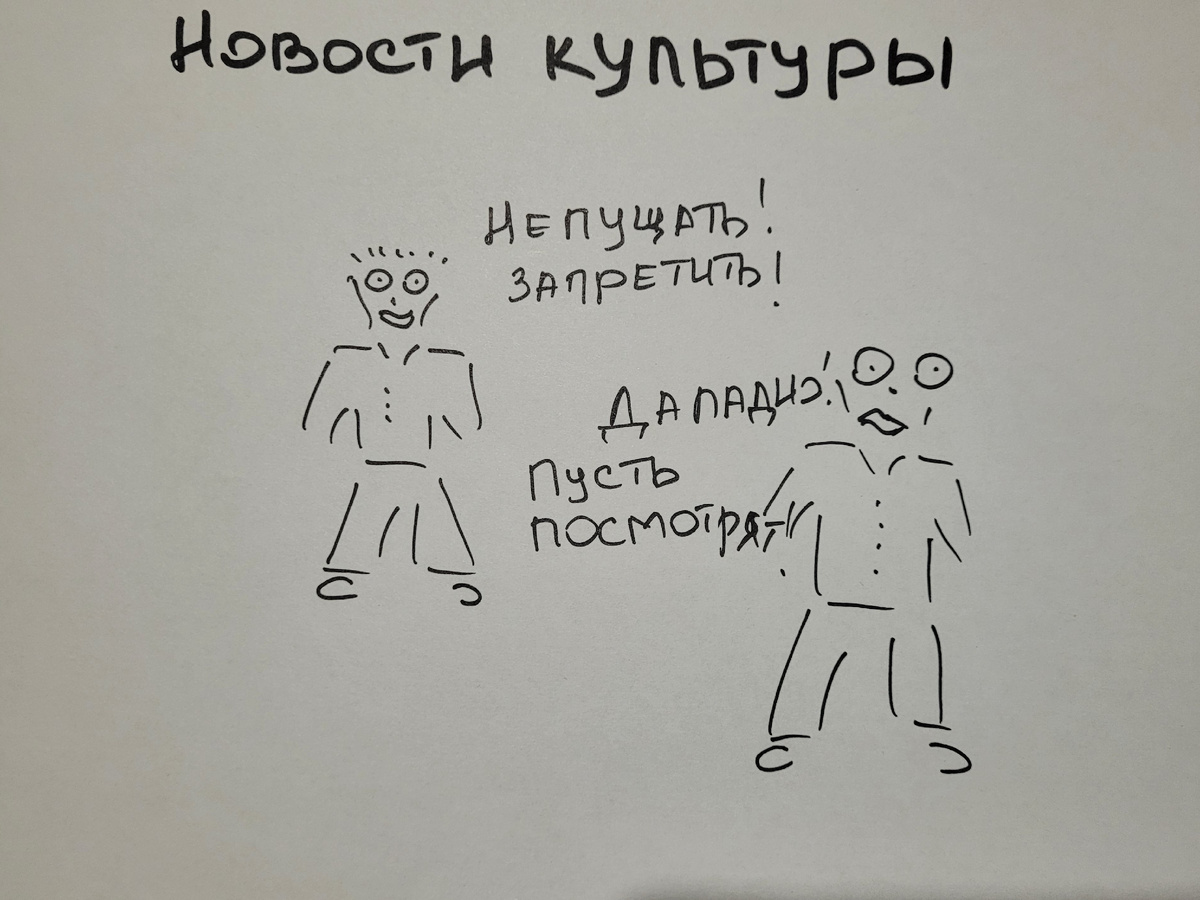 Новости культуры
Не пущать!
Запретить!
Да ладно!
Пусть
посмотрят!